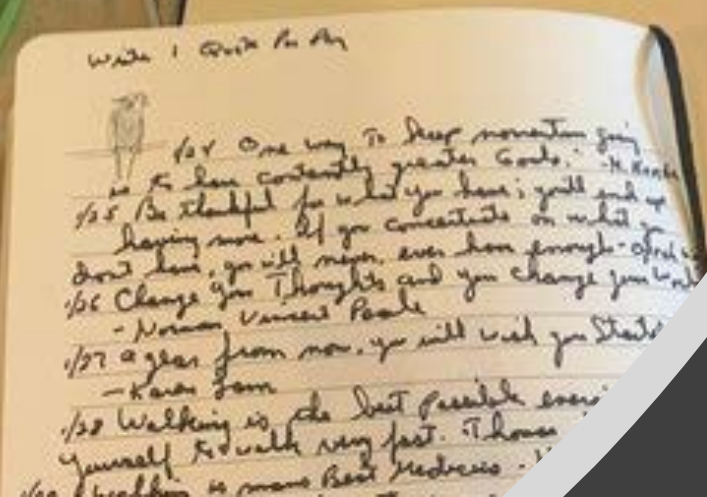 Write 1 Quote Per Day
1/24 One way to keep momentum going
is to have constantly greater Goals." -M.
1/25 Be thankful for what you have; you'll end up
having more. If you concentrate on what you
don't have, you will never, ever have enough - Oprah
1/26 Change your Thoughts and you Change your World
- Norman Vincent Peale
1/27 A year from now, you will wish you Started
- Karen Lamb
1/28 Walking is the best possible
Yourself to walk very fast. Thomas
Walking is mans Best Medicine -